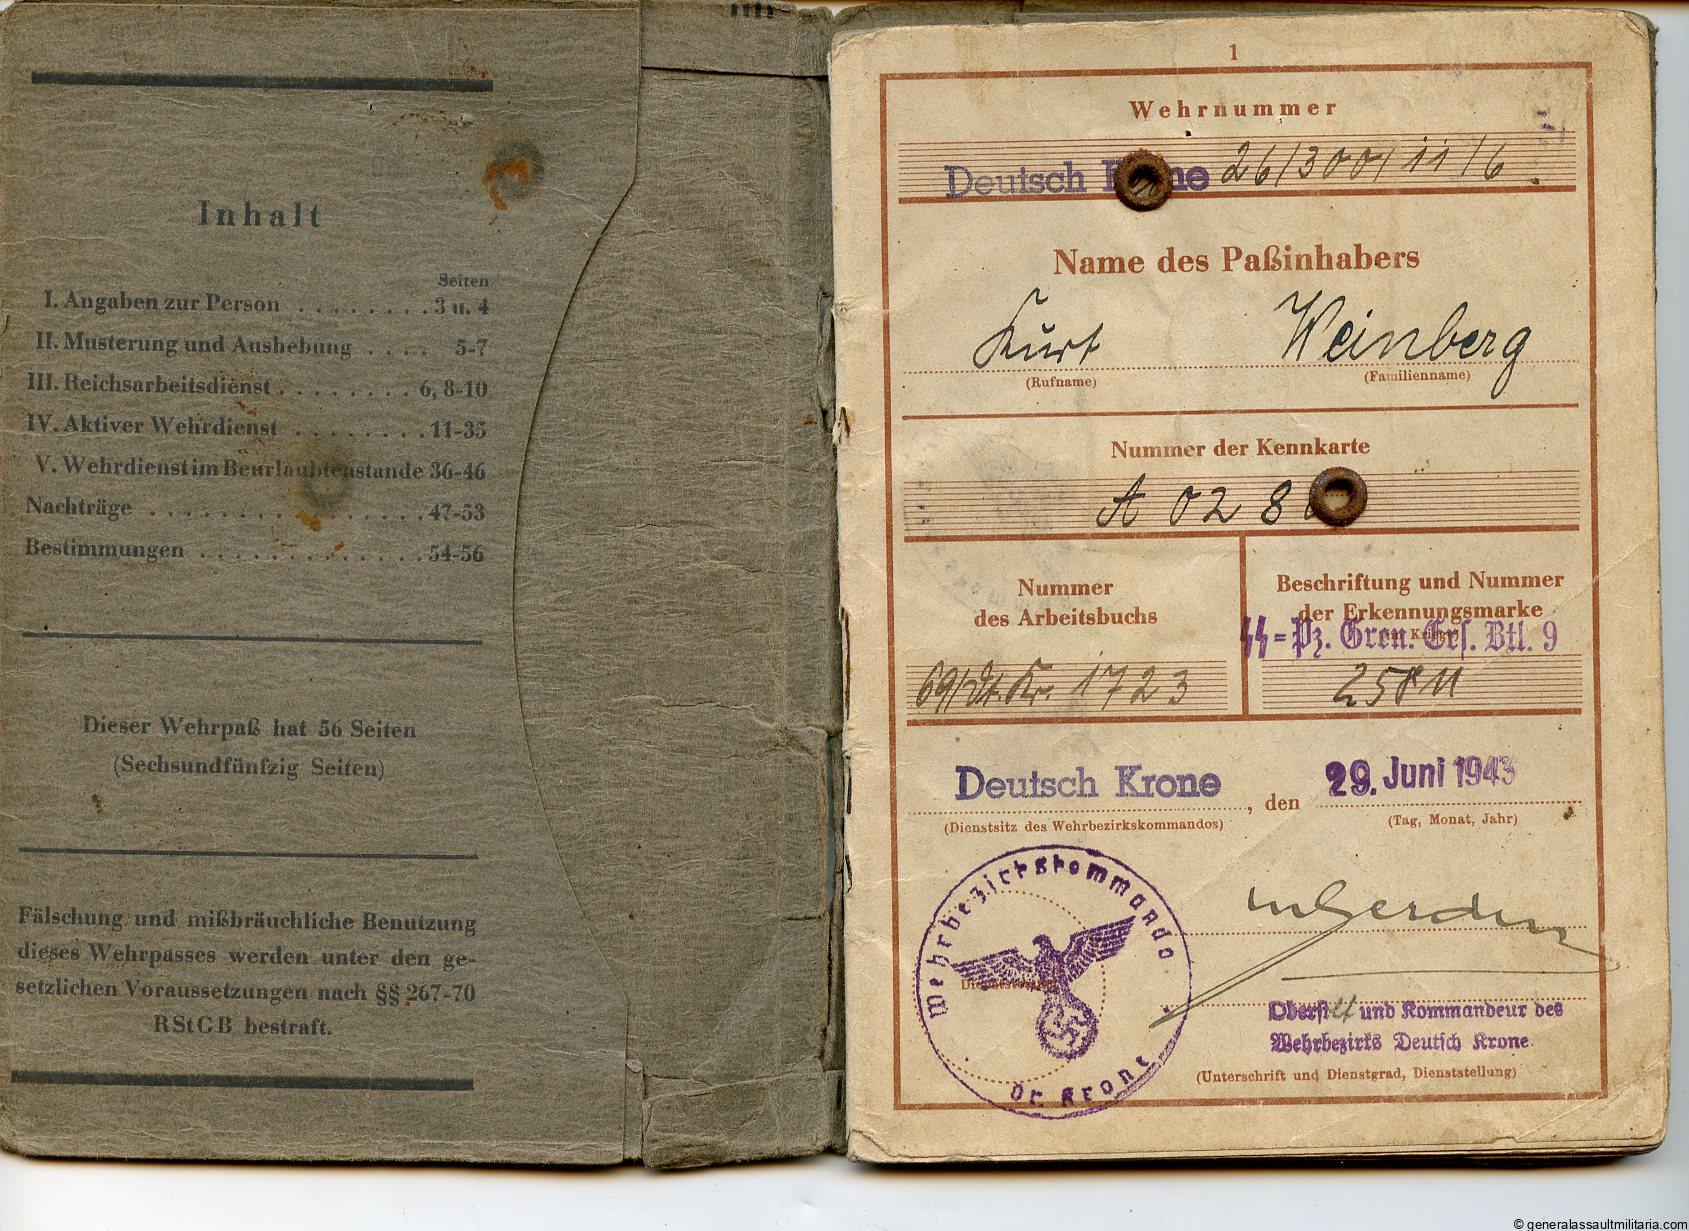 Inhalt
Seiten
I. Angaben zur Person . . . . . . . . 3 u. 4
II. Musterung und Aushebung . . . . 5-7
III. Reichsarbeitsdienst . . . . . . . . 6, 8-10
IV. Aktiver Wehrdienst . . . . . . . . 11-35
V. Wehrdienst im Beurlaubtenstande 36-46
Nachträge . . . . . . . . . . . . . . . 47-53
Bestimmungen . . . . . . . . . . . . . 54-56
Dieser Wehrpaß hat 56 Seiten
(Sechsundfünfzig Seiten)
Fälschung und mißbräuchliche Benutzung
dieses Wehrpasses werden unter den ge-
setzlichen Voraussetzungen nach §§ 267-70
RStGB bestraft.
1
Wehrnummer
Deutsch Krone 26/300/11/6
Name des Paßinhabers
Kurt Weinberg
(Rufname) (Familienname)
Nummer der Kennkarte
A 028
Nummer
des Arbeitsbuchs
69/Dt. Kr. 1723
Beschriftung und Nummer
der Erkennungsmarke
SS-Pz. Gren. Ers. Btl. 9
Deutsch Krone, den 29. Juni 1943
(Dienstsitz des Wehrbezirkskommandos) (Tag, Monat, Jahr)
Wehrbezirkskommando
Dt. Krone
Oberstlt und Kommandeur des
Wehrbezirks Deutsch Krone
(Unterschrift und Dienstgrad, Dienststellung)
© generalassaultmilitaria.com